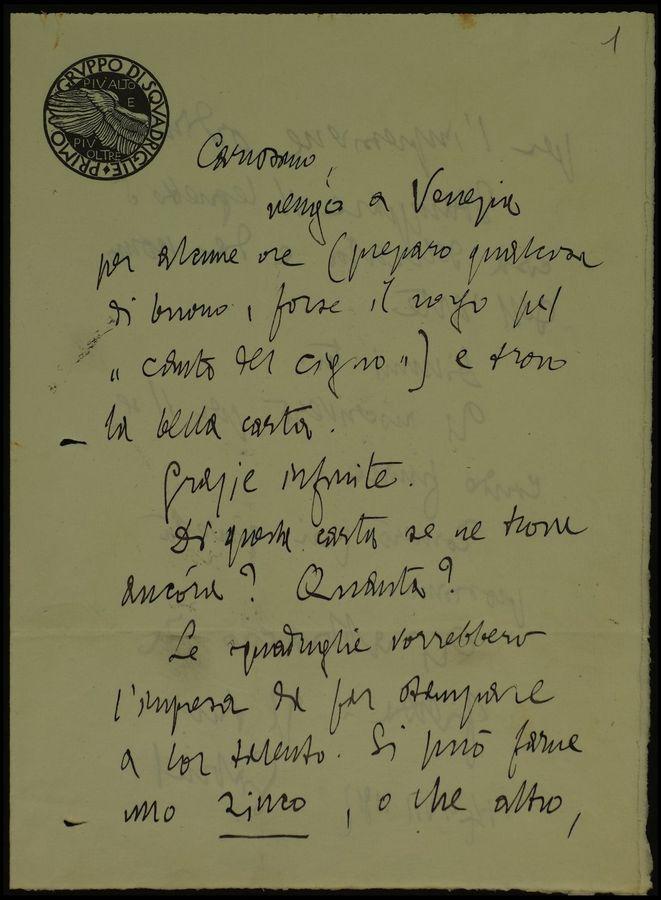 1
PRIMO GRVPPO DI SQVADRIGLIE
PIV' ALTO
E
PIV'
OLTRE
Carissimo,
vengo a Venezia
per alcune ore (preparo qualcosa
di buono, forse il volo pel
"canto del cigno") e trovo
la bella carta.
Grazie infinite.
Di questa carta se ne trova
ancóra? Quanta?
Le squadriglie vorrebbero
l'impresa da far stampare
a lor talento. Si può farne
uno zinco, o che altro,